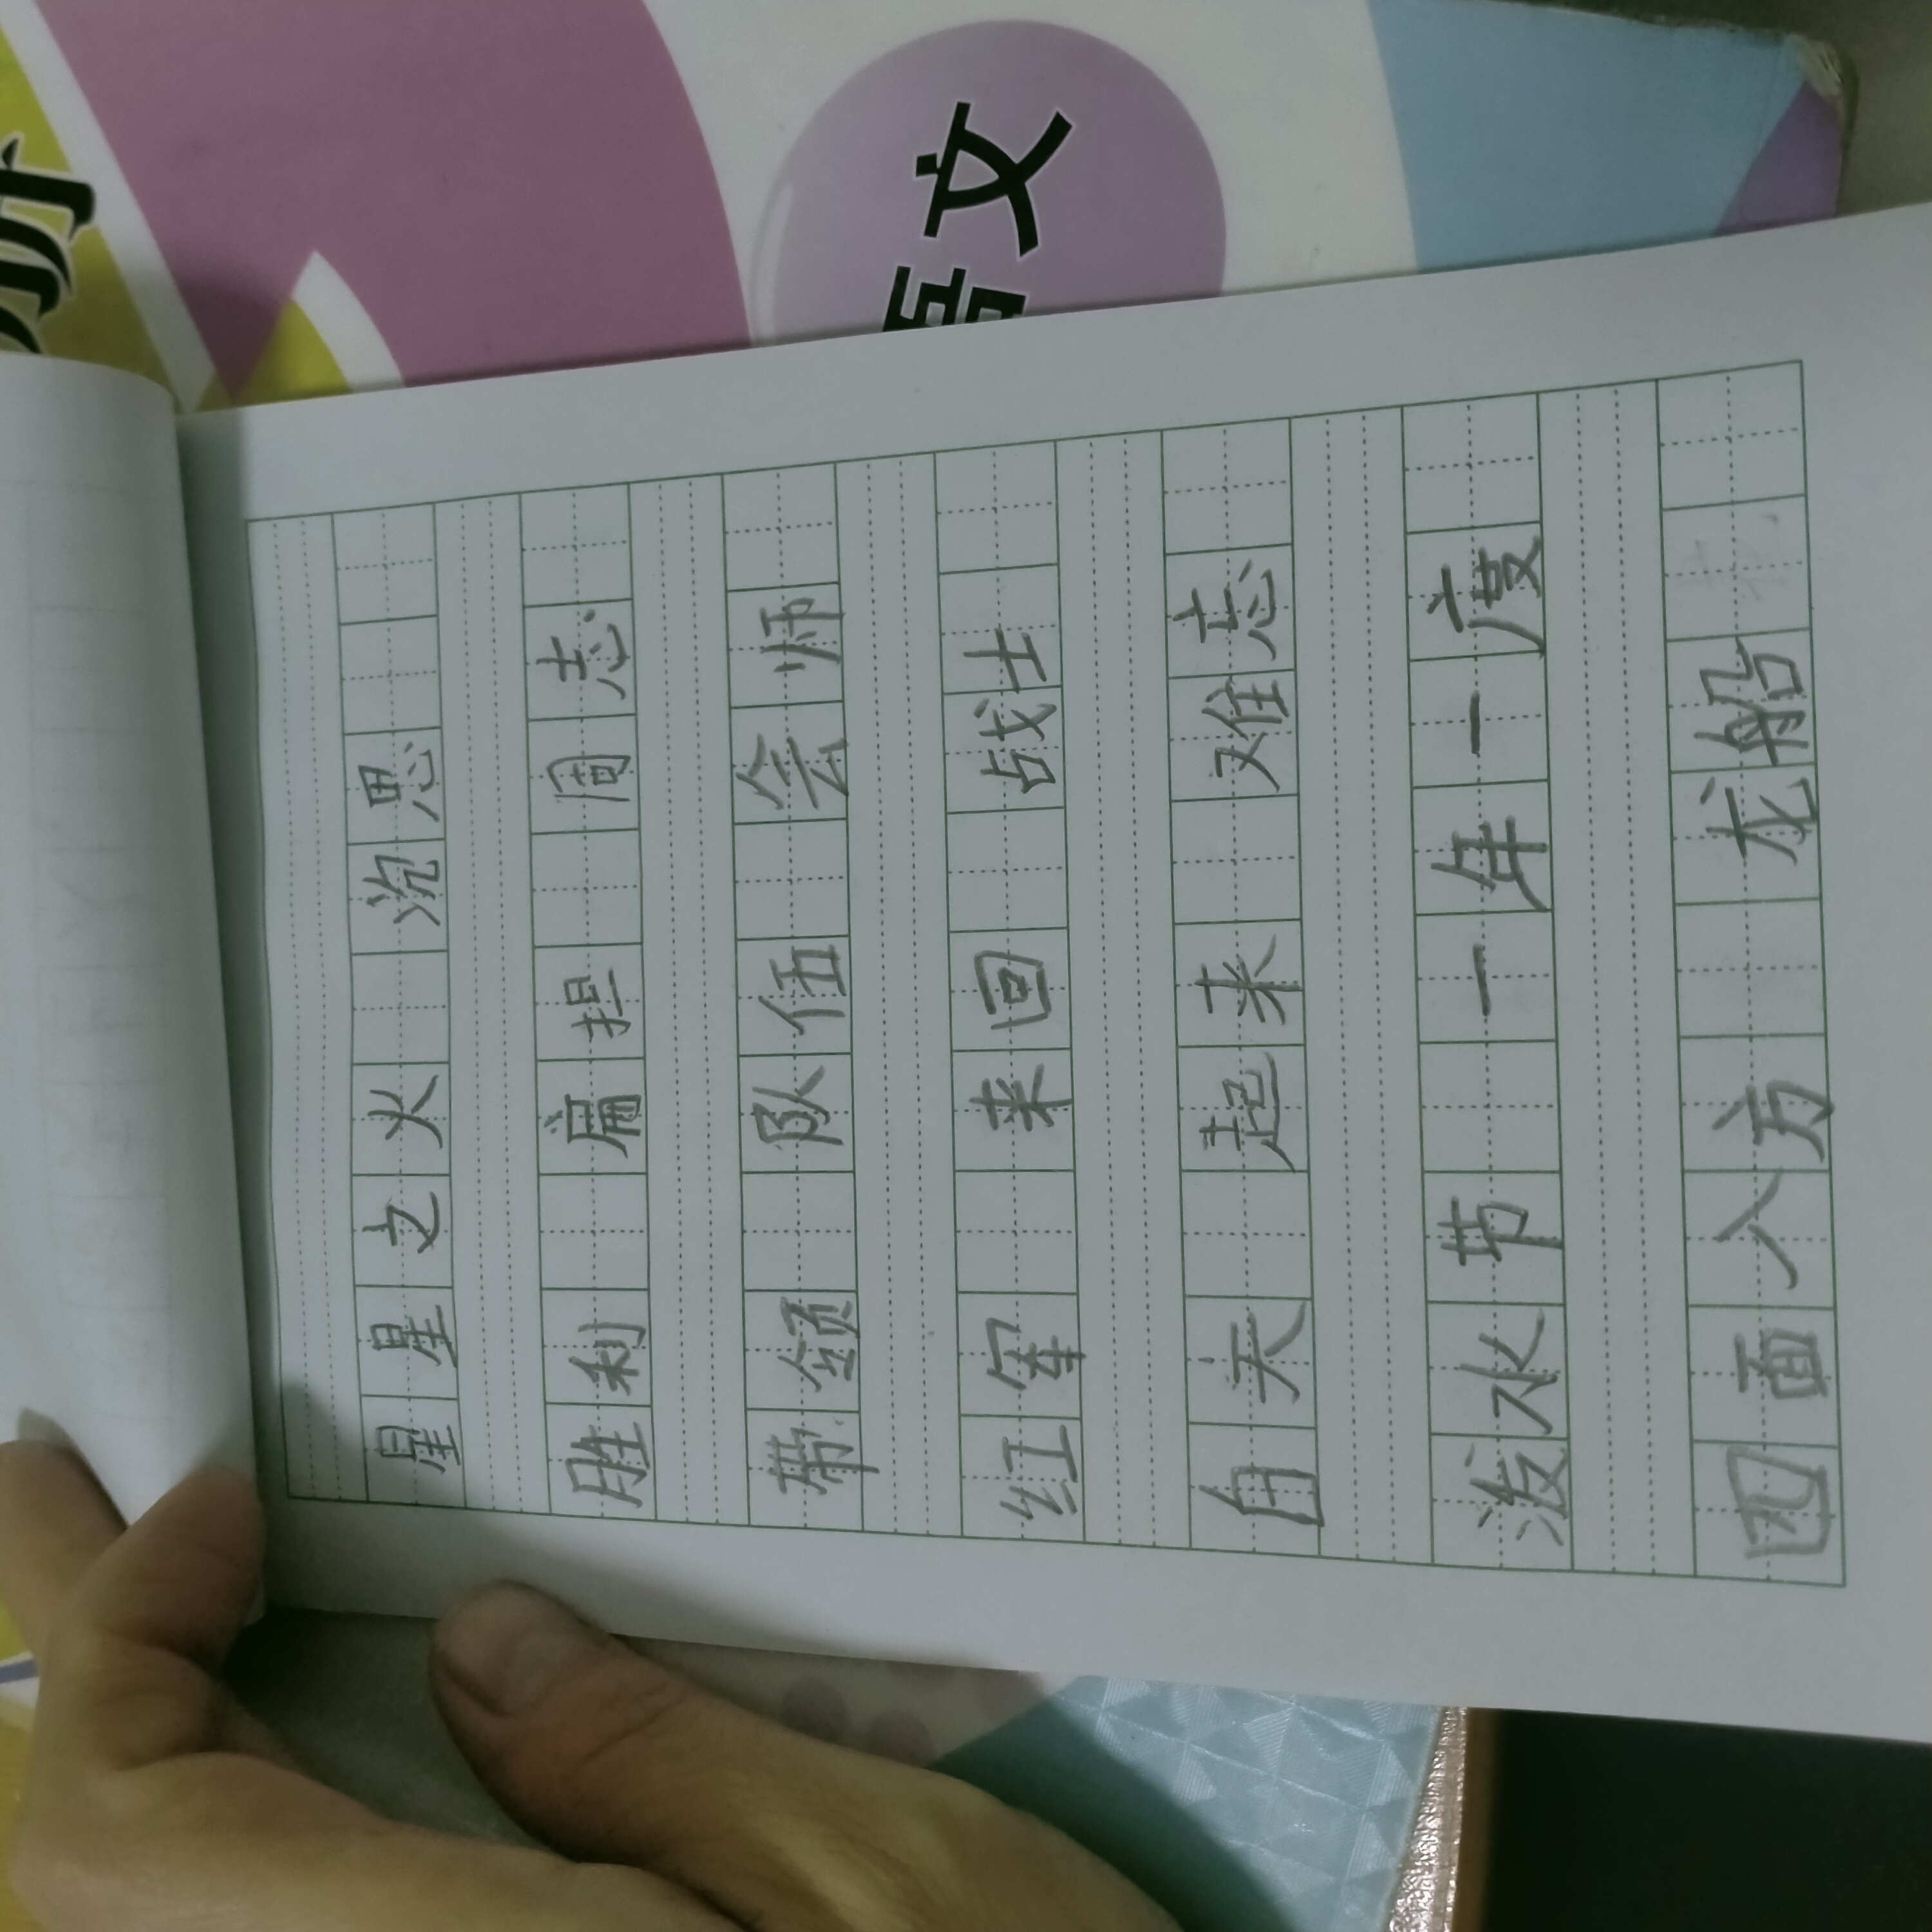 文
星星之火 沉思
胜利 扁担 同志
带领 队伍 会师
红军 来回 战士
白天 起来 难忘
泼水节 一年一度
四面八方 龙船